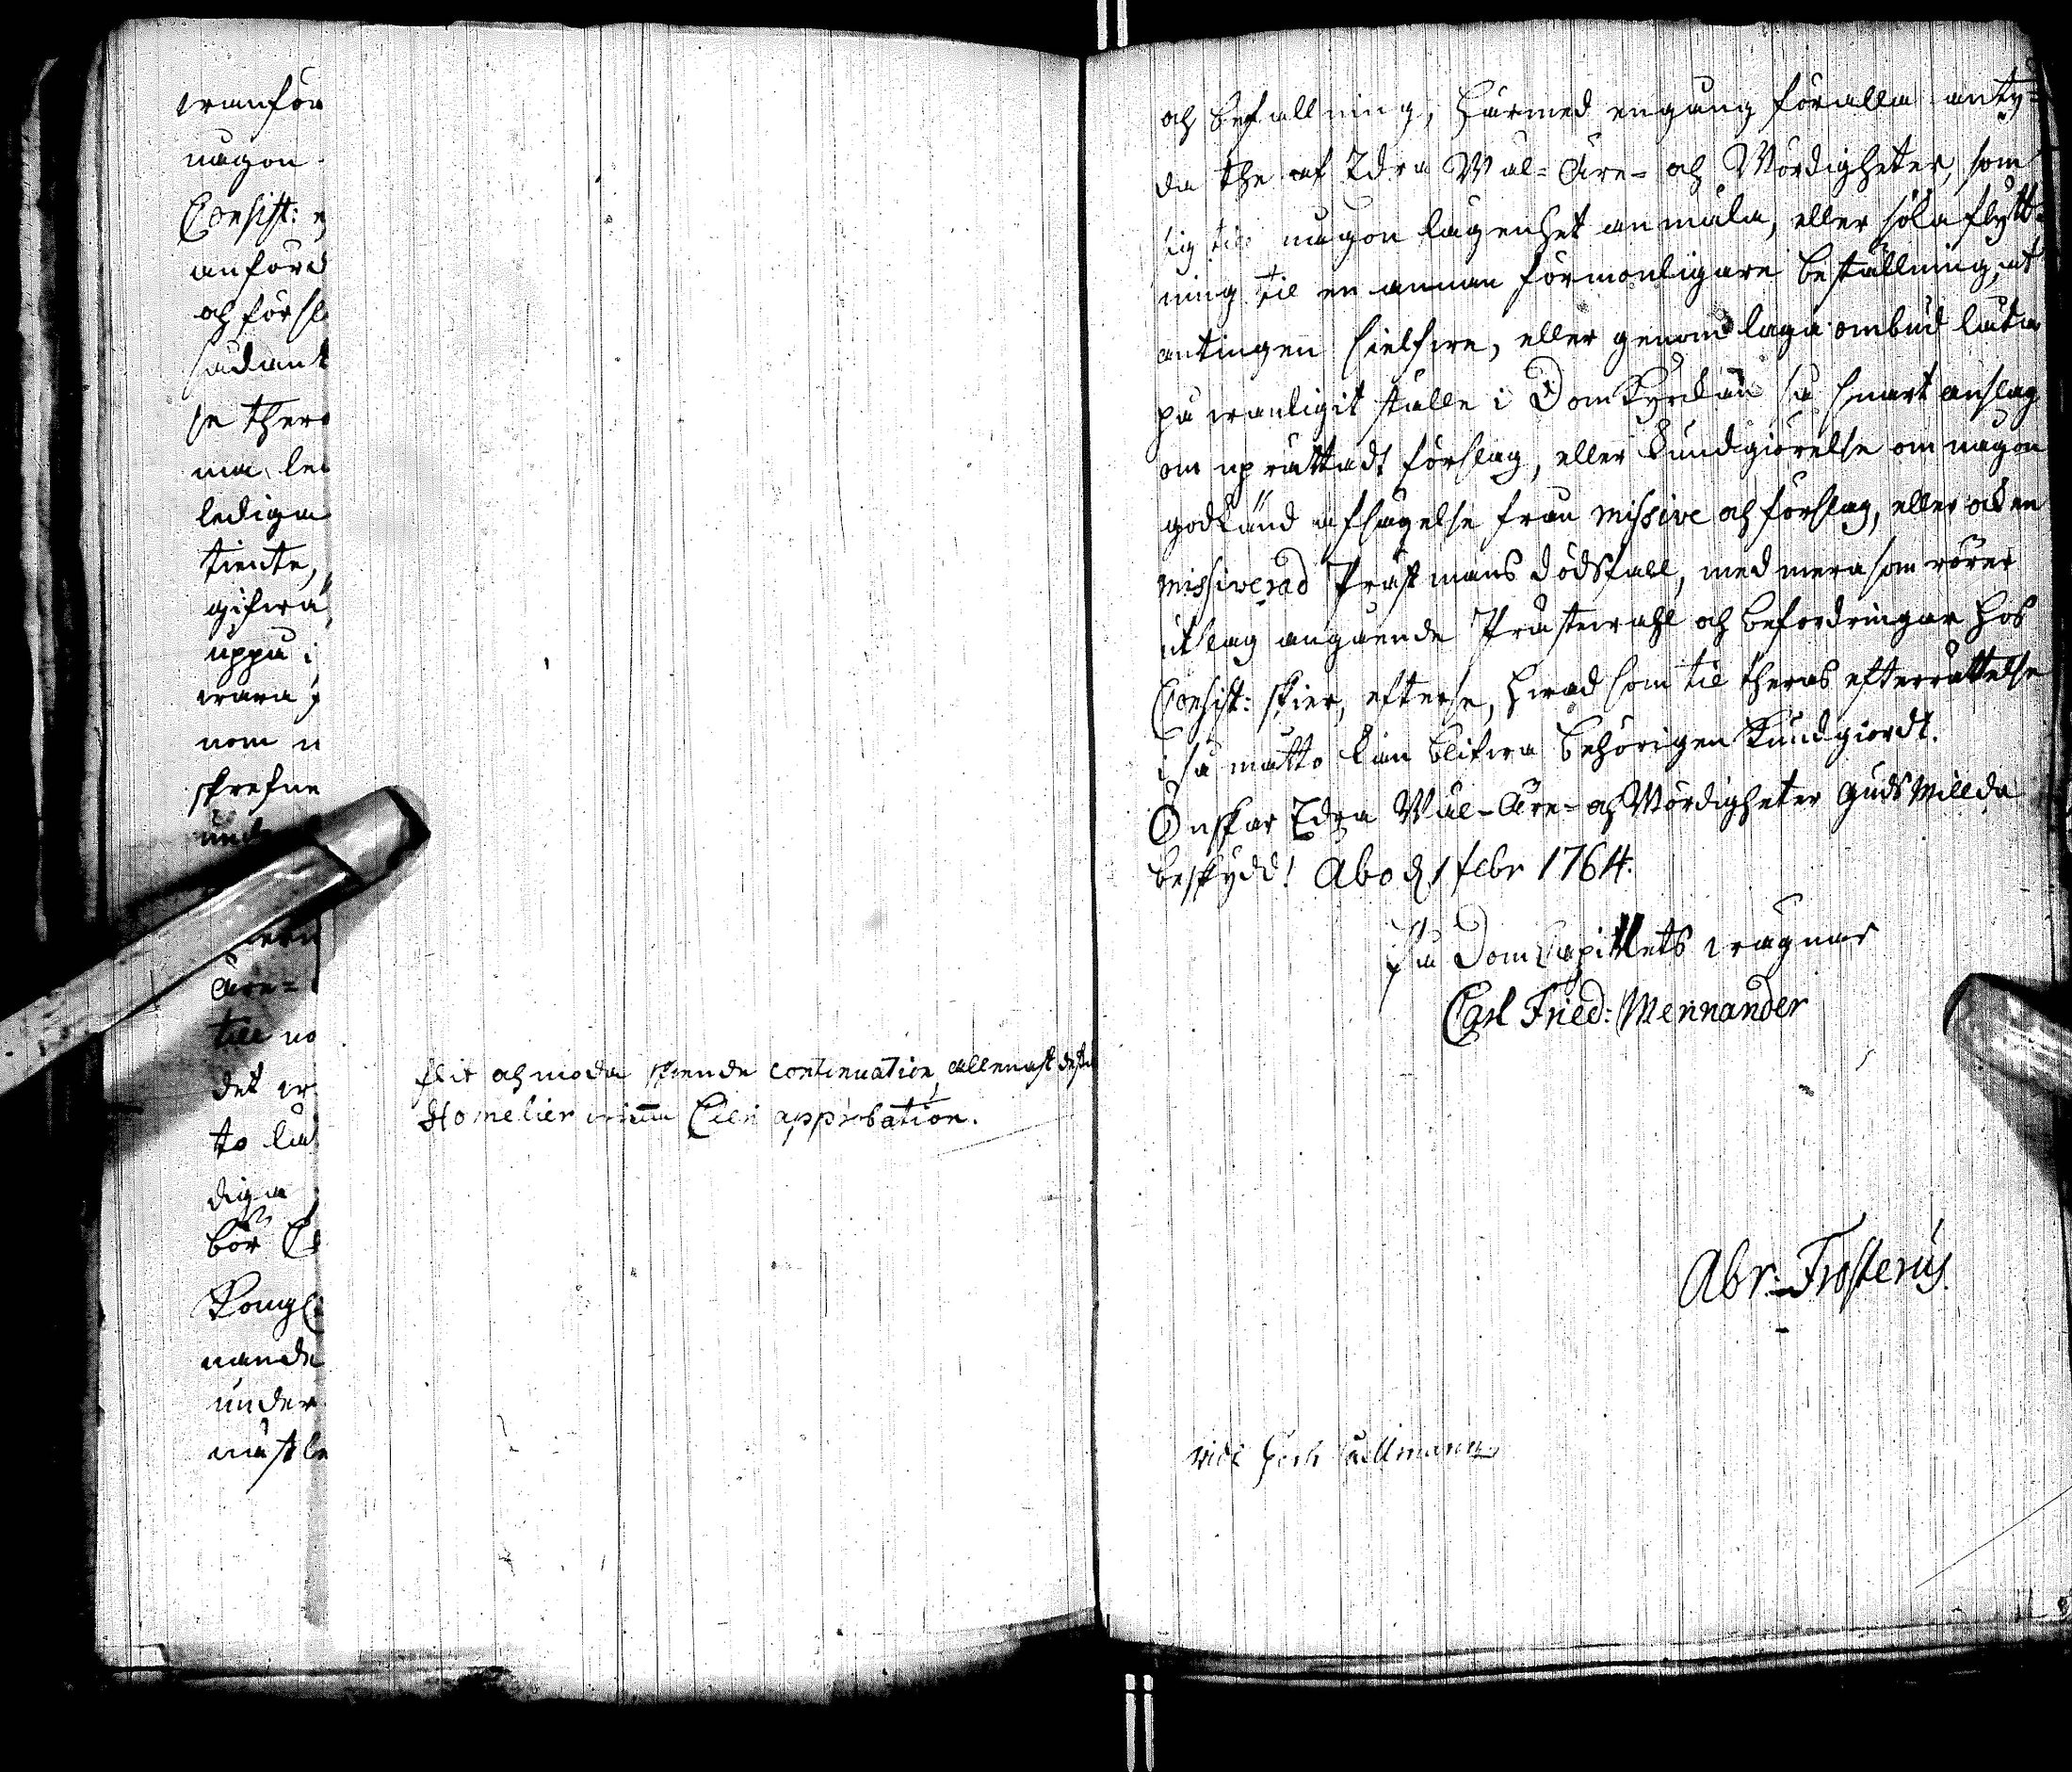 wanför
någon
Consist: 
anförd
och försl
sådant
se thero
ma, le
lediga
tiente,
gifwa
uppå i
wara
nom
skrefne
und
Äre=
till no
det
to lä
diga
bör
Kongl
nande
under
måste
flit och möda skiende continuation, allenast desse
Homelier Cleri approbation.
och befallning, härmed engång för alla anty=
da the af Edra Wäl= Äre= och Wördigheter, som
sig till någon lägenhet anmäla, eller söka flytt=
ning til en annan förmonligare beställning, at
antingen sielfwe, eller genom laga ombud låta
på wanligit ställe i DomKyrckan så snart anslag
om uprättadt förslag, eller kundgiörelse om någon
godkänd afsägelse från missive och förslag, eller ock en
missiverad Prästmans dödsfall, med mera som rörer
utslag angående Prästewahl och befordringar hos
Consist: skier, efterse, hwad som til theras efterrättelse
i så måtto kan blifwa behörigen kundgiordt.
Önskar Edra Wäl=Äre= och Wördigheter Guds Millda
beskydd! Åbo d 1 Febr 1764.
På DomCapitlets wägnar
Carl Fried: Mennander
Abr: Frosterus